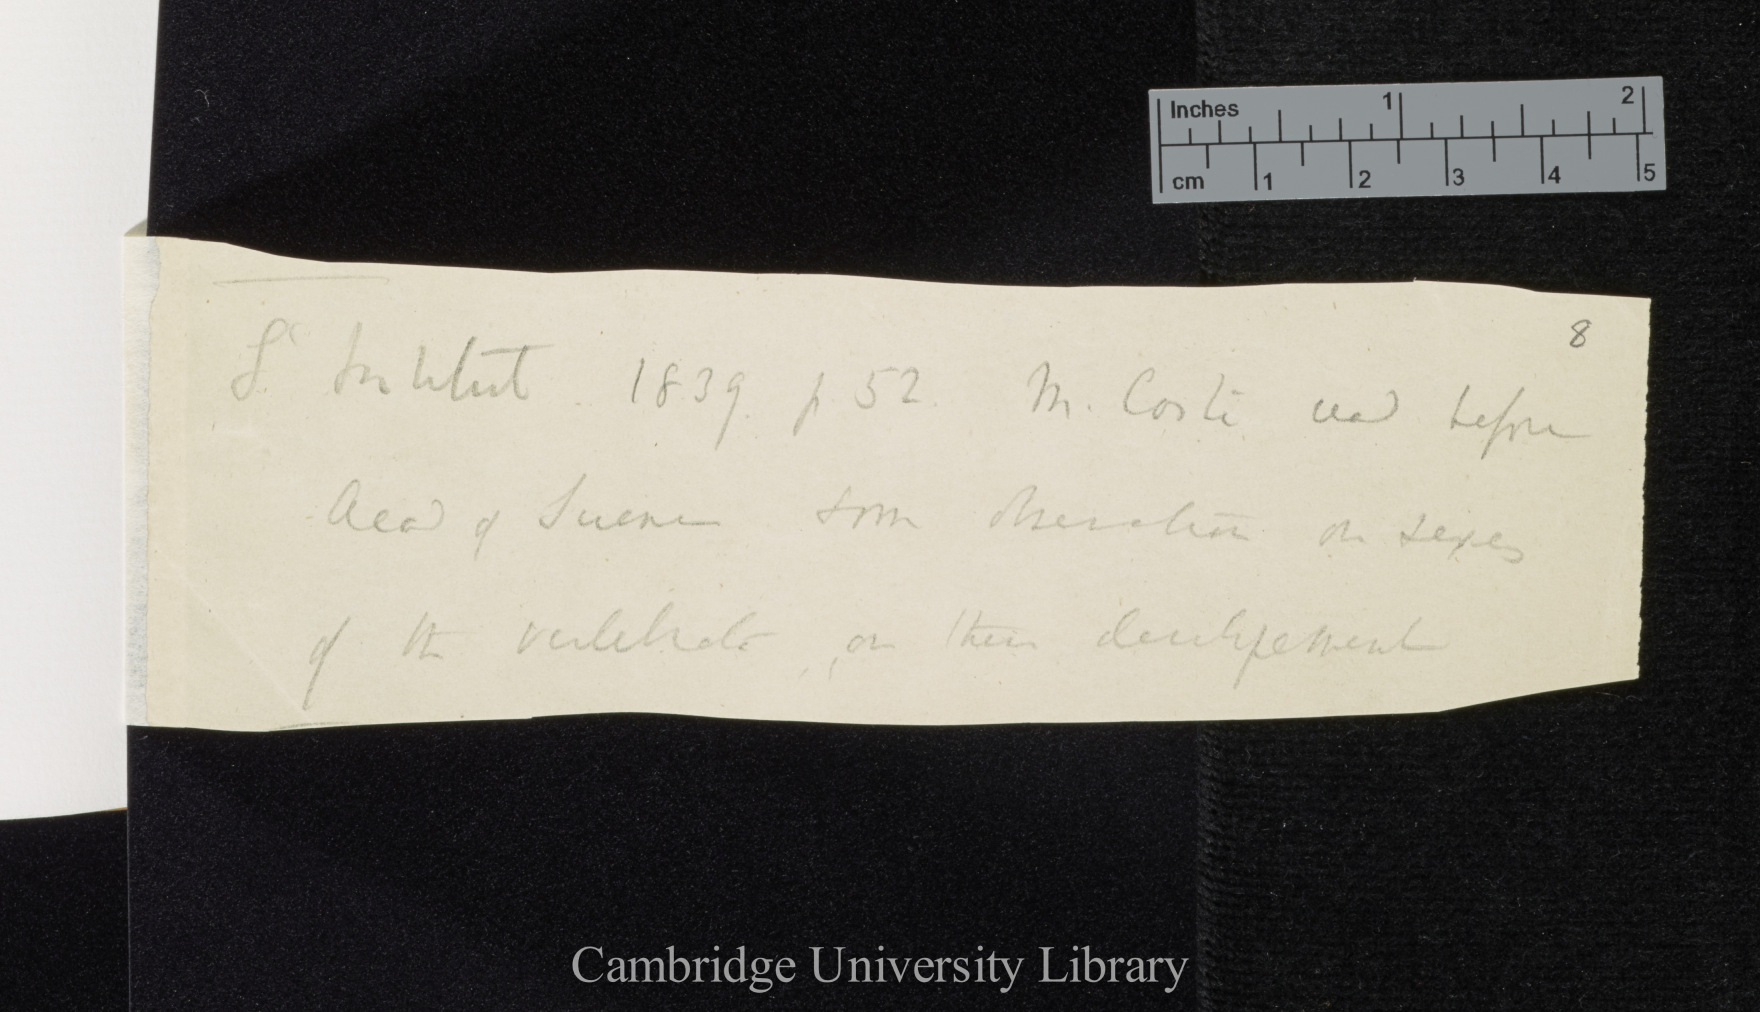 Inches 1 2
cm 1 2 3 4 5
8
L' Institut 1839. p 52. M. Coste read before
Acad of Science some observation on sexes
of the vertebrata, on their developement
Cambridge University Library